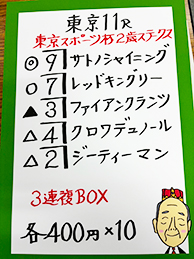 東京11R
東京スポーツ杯2歳ステークス
◎ 9 サトノシャイニング
○ 7 レッドキングリー
▲ 3 ファイアンクランツ
△ 4 クロワデュノール
△ 2 ジーティーマン
3連複BOX
各400円×10